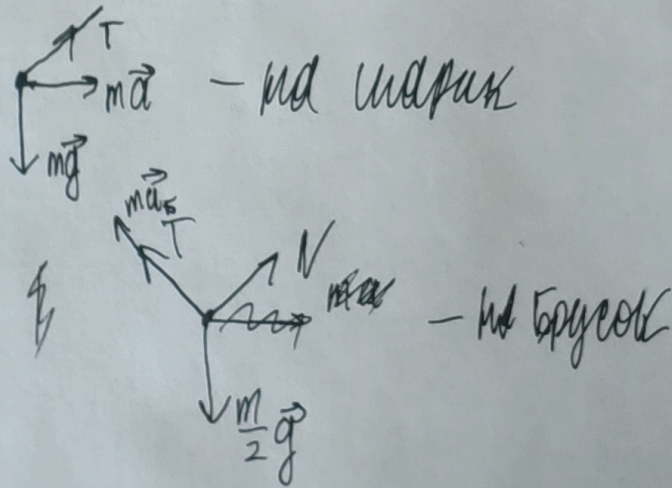 T
ma⃗ - на шарик
mg⃗
ma⃗Б
T
N
- на брусок
m/2 g⃗